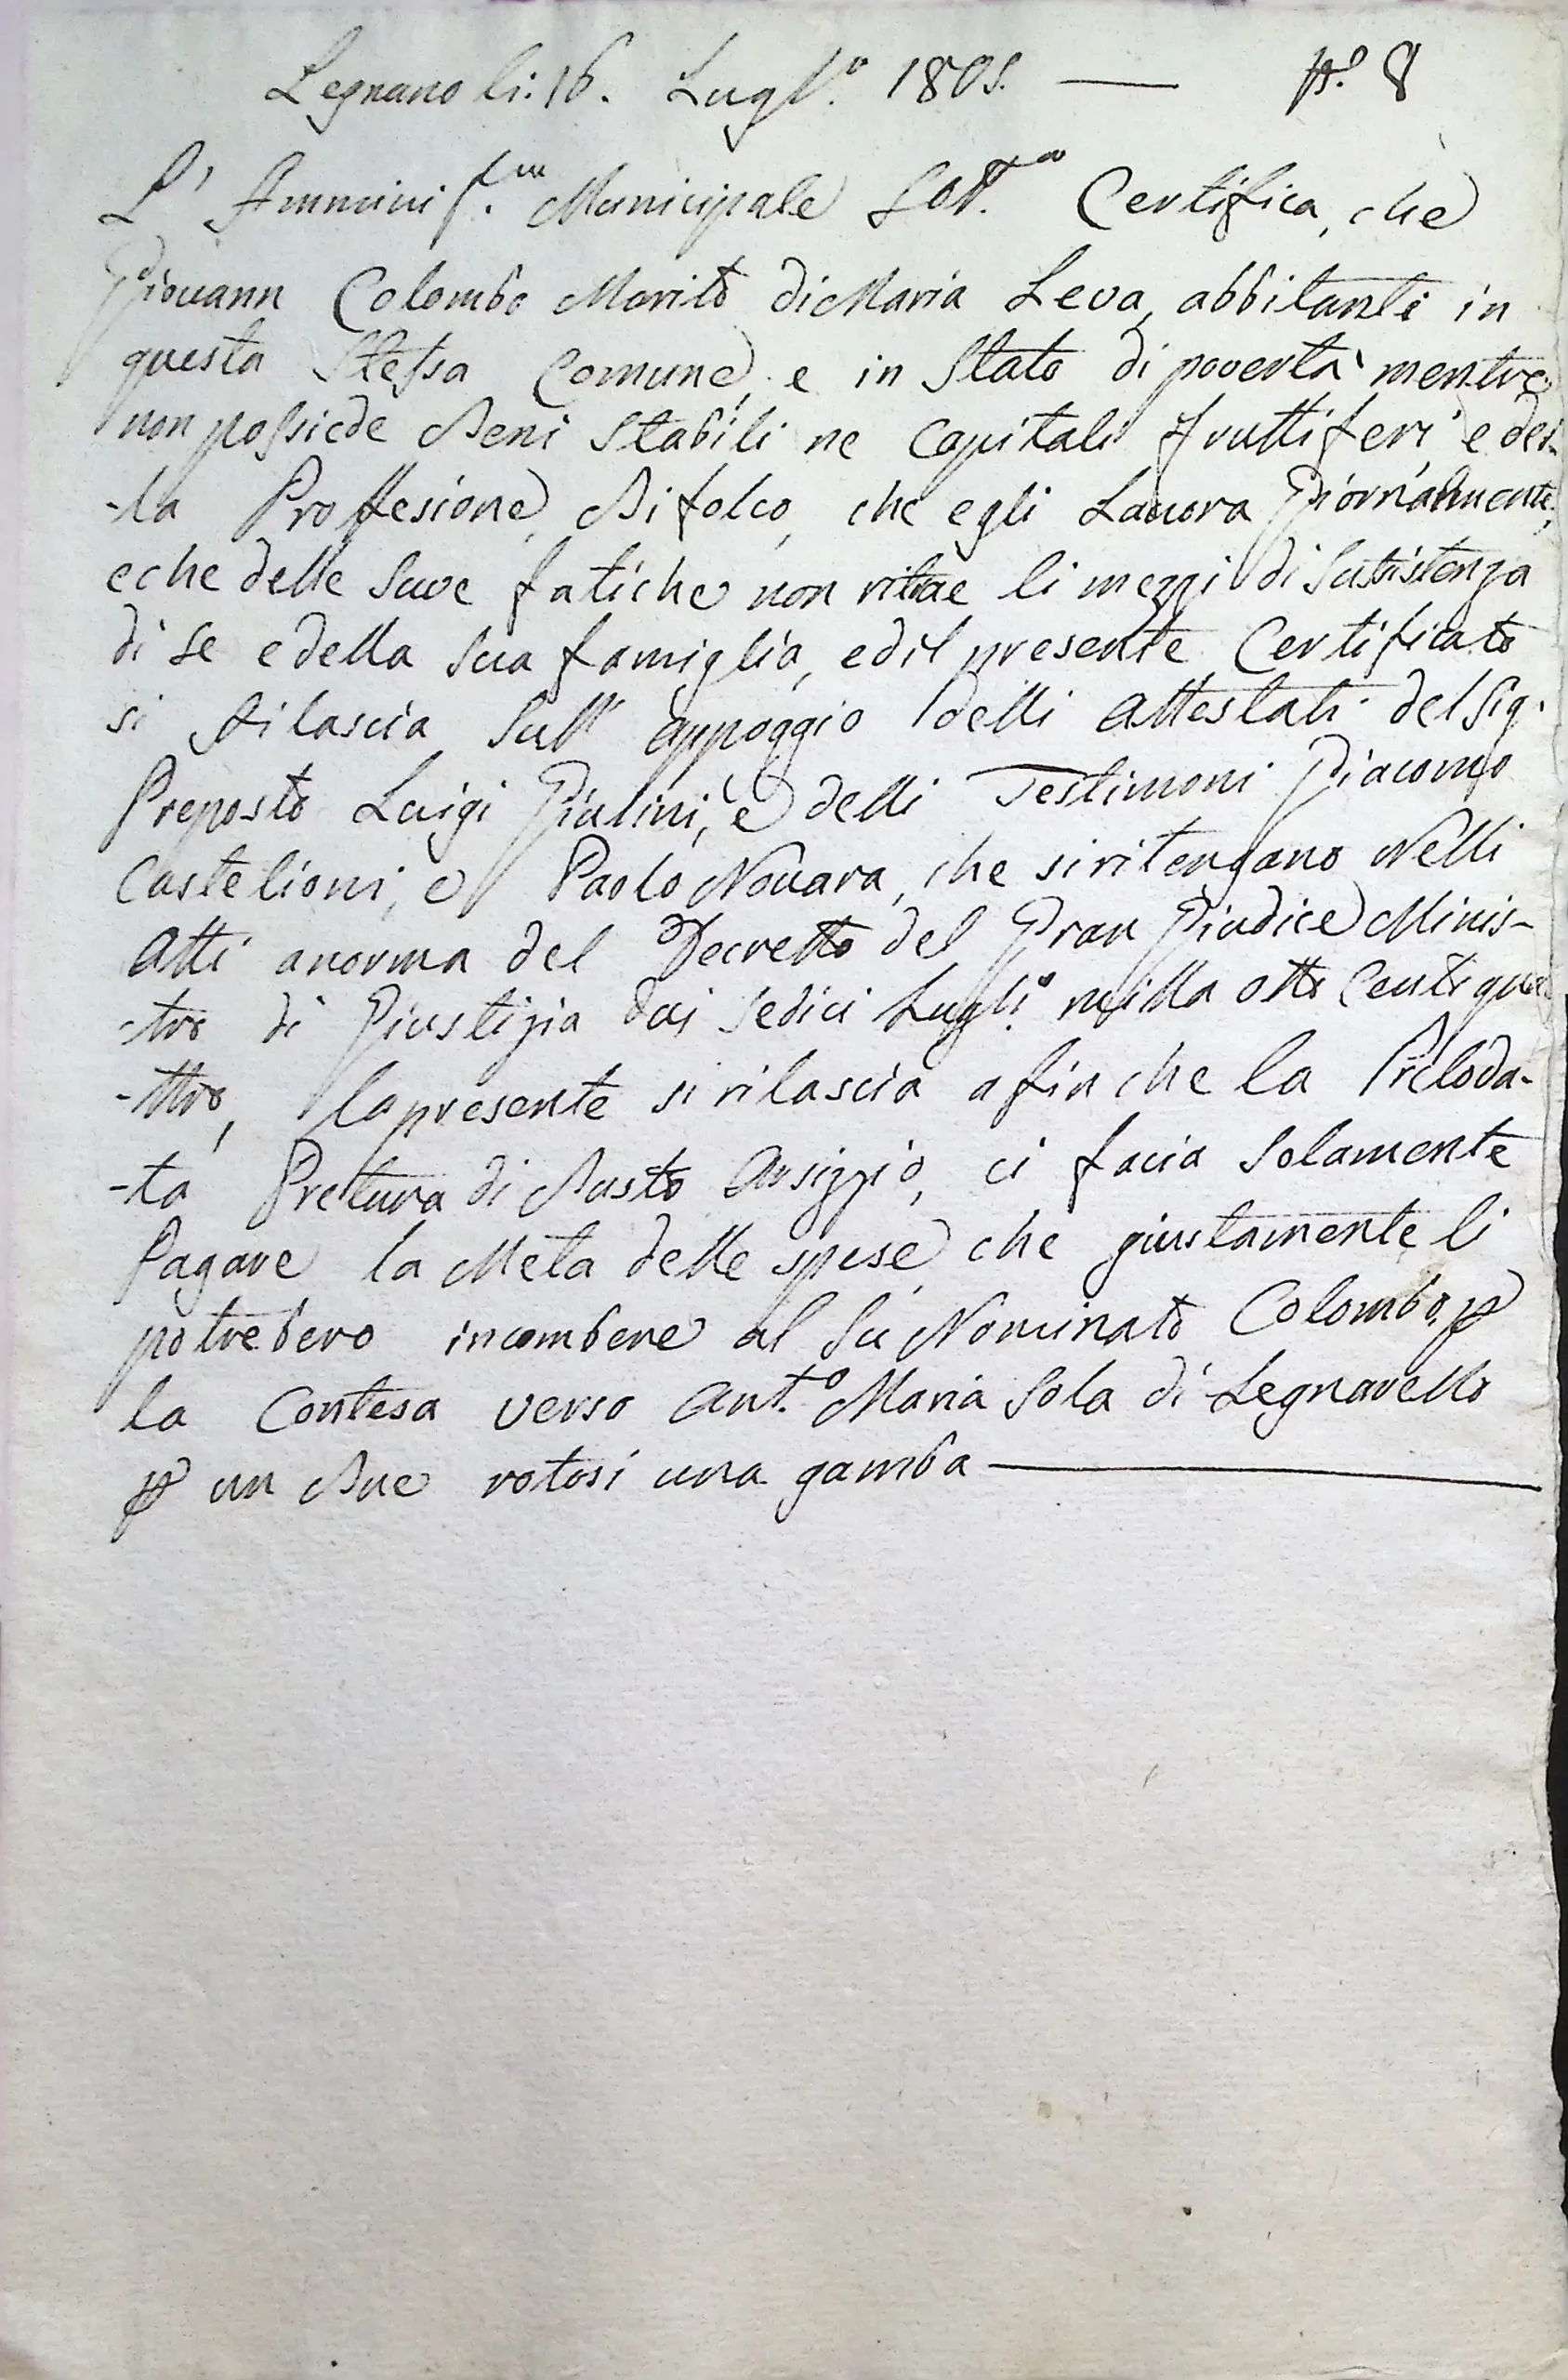 Legnano li: 16. Lugl.o 1805. — N.o 8
L' Amminis.ne Municipale Sott.a Certifica, che
Giovann Colombo Marito di Maria Leva, abbitante in
questa Stessa Comune, e in Stato di povertà mentre
non possiede Beni Stabili ne Capitali fruttiferi e del-
-la Proffesione, Bifolco, che egli Lavora Giornalmente,
e che delle Sue fatiche non ritrae li mezzi di Sussistenza
di se e della Sua famiglia, ed il presente Certificato
si Rilascia Sull' appoggio delli Attestati del Sig.
Preposto Luigi Giulini, e delli Testimoni Giacomo
Castelioni, e Paolo Novara, che si ritengano Nelli
Atti a norma del Decretto del Gran Giudice Minis-
-tro di Giustizia dei Sedici Lugli.o milla otto Cento qua
-ttro, la presente si rilascia afin che la Preloda-
-ta Pretura di Busto Arsizzio, ci facia Solamente
Pagare la Meta delle spese, che giustamente li
potrebero incombere al Su Nominato Colombo, p
la Contesa verso Ant.o Maria Sola di Legnarello
p un Bue rotosi una gamba —